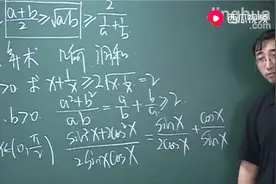 西瓜视频
a+b/2 ≥ √ab ≥ 2/(1/a+1/b)
算术 几何 调和
>0 求 x+1/x ≥ 2√x·1/x =2
b>0. a²+b²/ab = a/b + b/a ≥ 2.
x∈(0,π/2) sin²x+2cos²x/2sinxcosx = sinx/2cosx + cosx/sinx